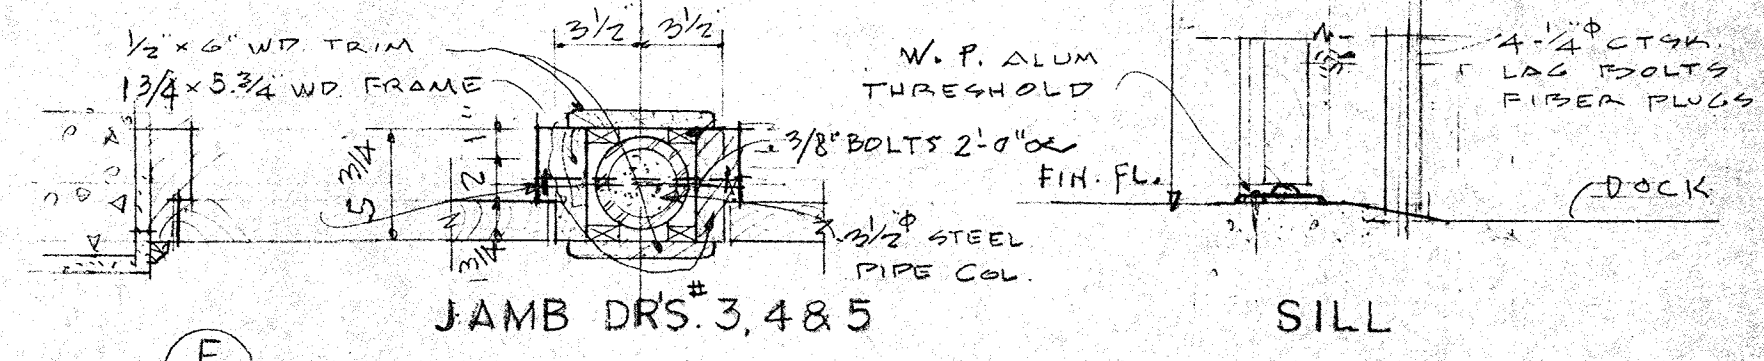 1/2" x 6" WD. TRIM
1 3/4 x 5.3/4" WD. FRAME
3 1/2" 3 1/2"
5 3/4
1"
2
1 3/4
3/8" BOLTS 2'-0" oc
3 1/2" Φ STEEL
PIPE COL.
JAMB DR'S. # 3, 4 & 5
E
W. P. ALUM
THRESHOLD
FIN. FL.
4-1/4" Φ CTSK.
LAG BOLTS
FIBER PLUGS
DOCK
SILL